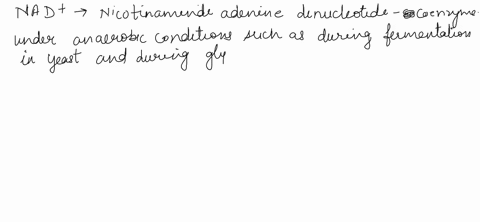 NAD+ → Nicotinamide adenine denucleotide - Coenzyme
under anaerobic conditions such as during fermentation
in yeast and during gly